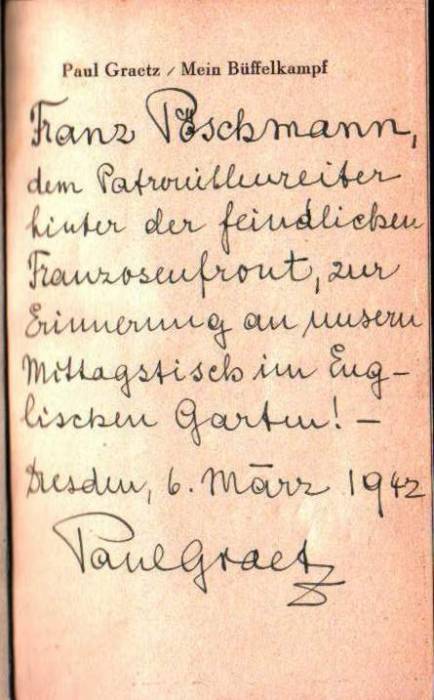 Paul Graetz / Mein Büffelkampf
Franz Pöschmann,
dem Patrouillenreiter
hinter der feindlichen
Franzosenfront, zur
Erinnerung an unsern
Mittagstisch im Eng-
lischen Garten! –
Dresden, 6. März 1942
Paul Graetz